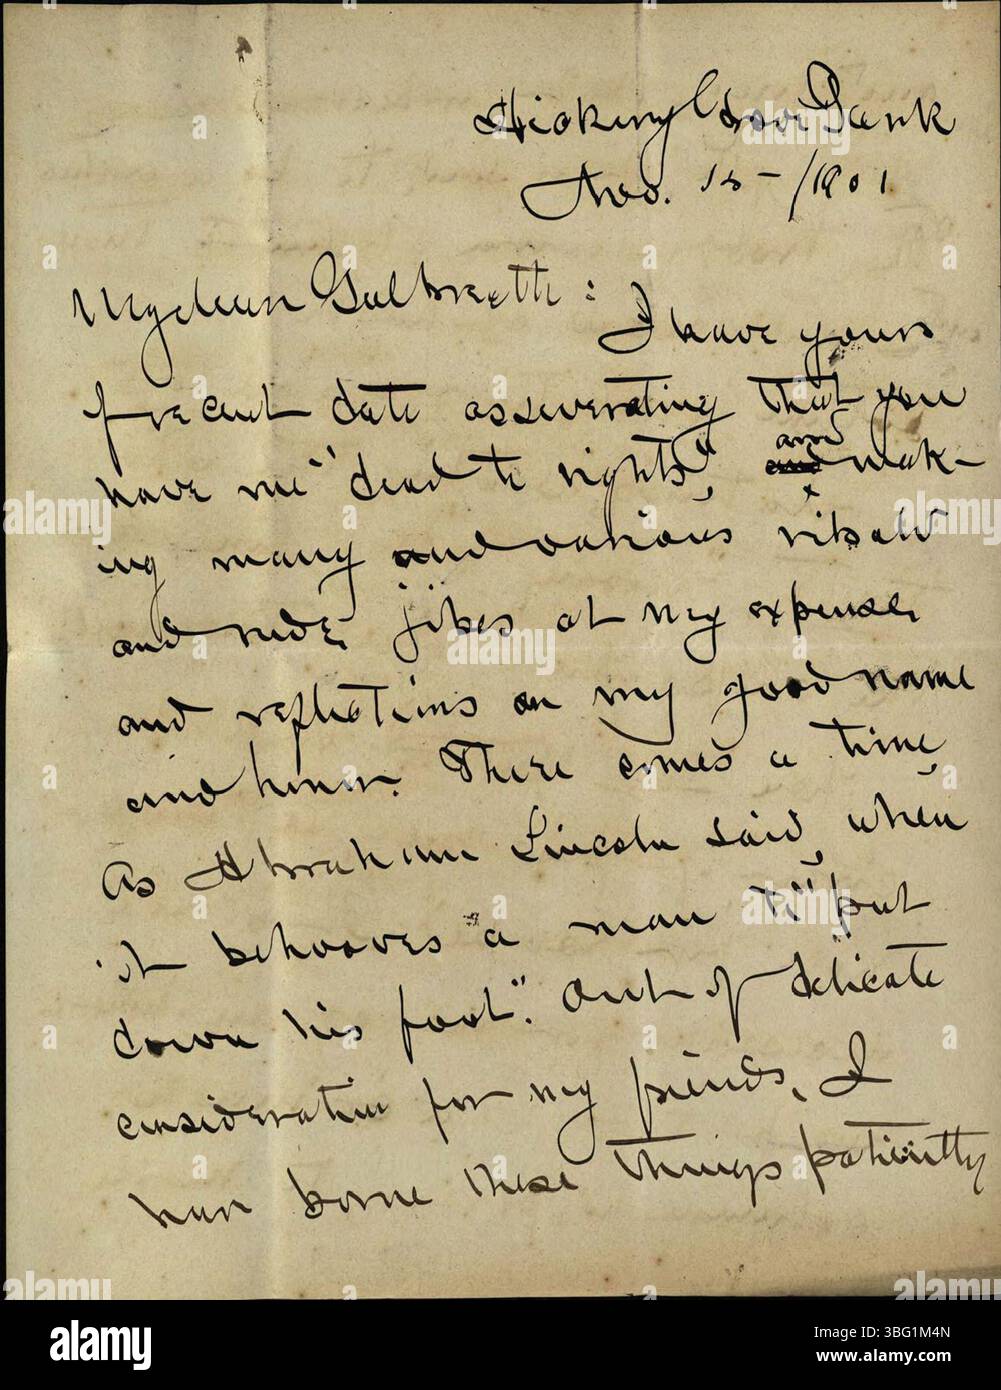 Hickory Grove Bank
Nov. 15-/1901
My dear Galbreath:
I have yours
of recent date asseverating that you
have me "dead to rights", and
and mak-
ing many and various ribald
and rude jokes at my expense
and reflections on my good name
and honor. There comes a time,
as Abraham Lincoln said, when
it behooves a man to "put
down his foot". Out of delicate
consideration for my friends, I
have borne these things patiently
alamy
Image ID: 3BG1M4N
www.alamy.com